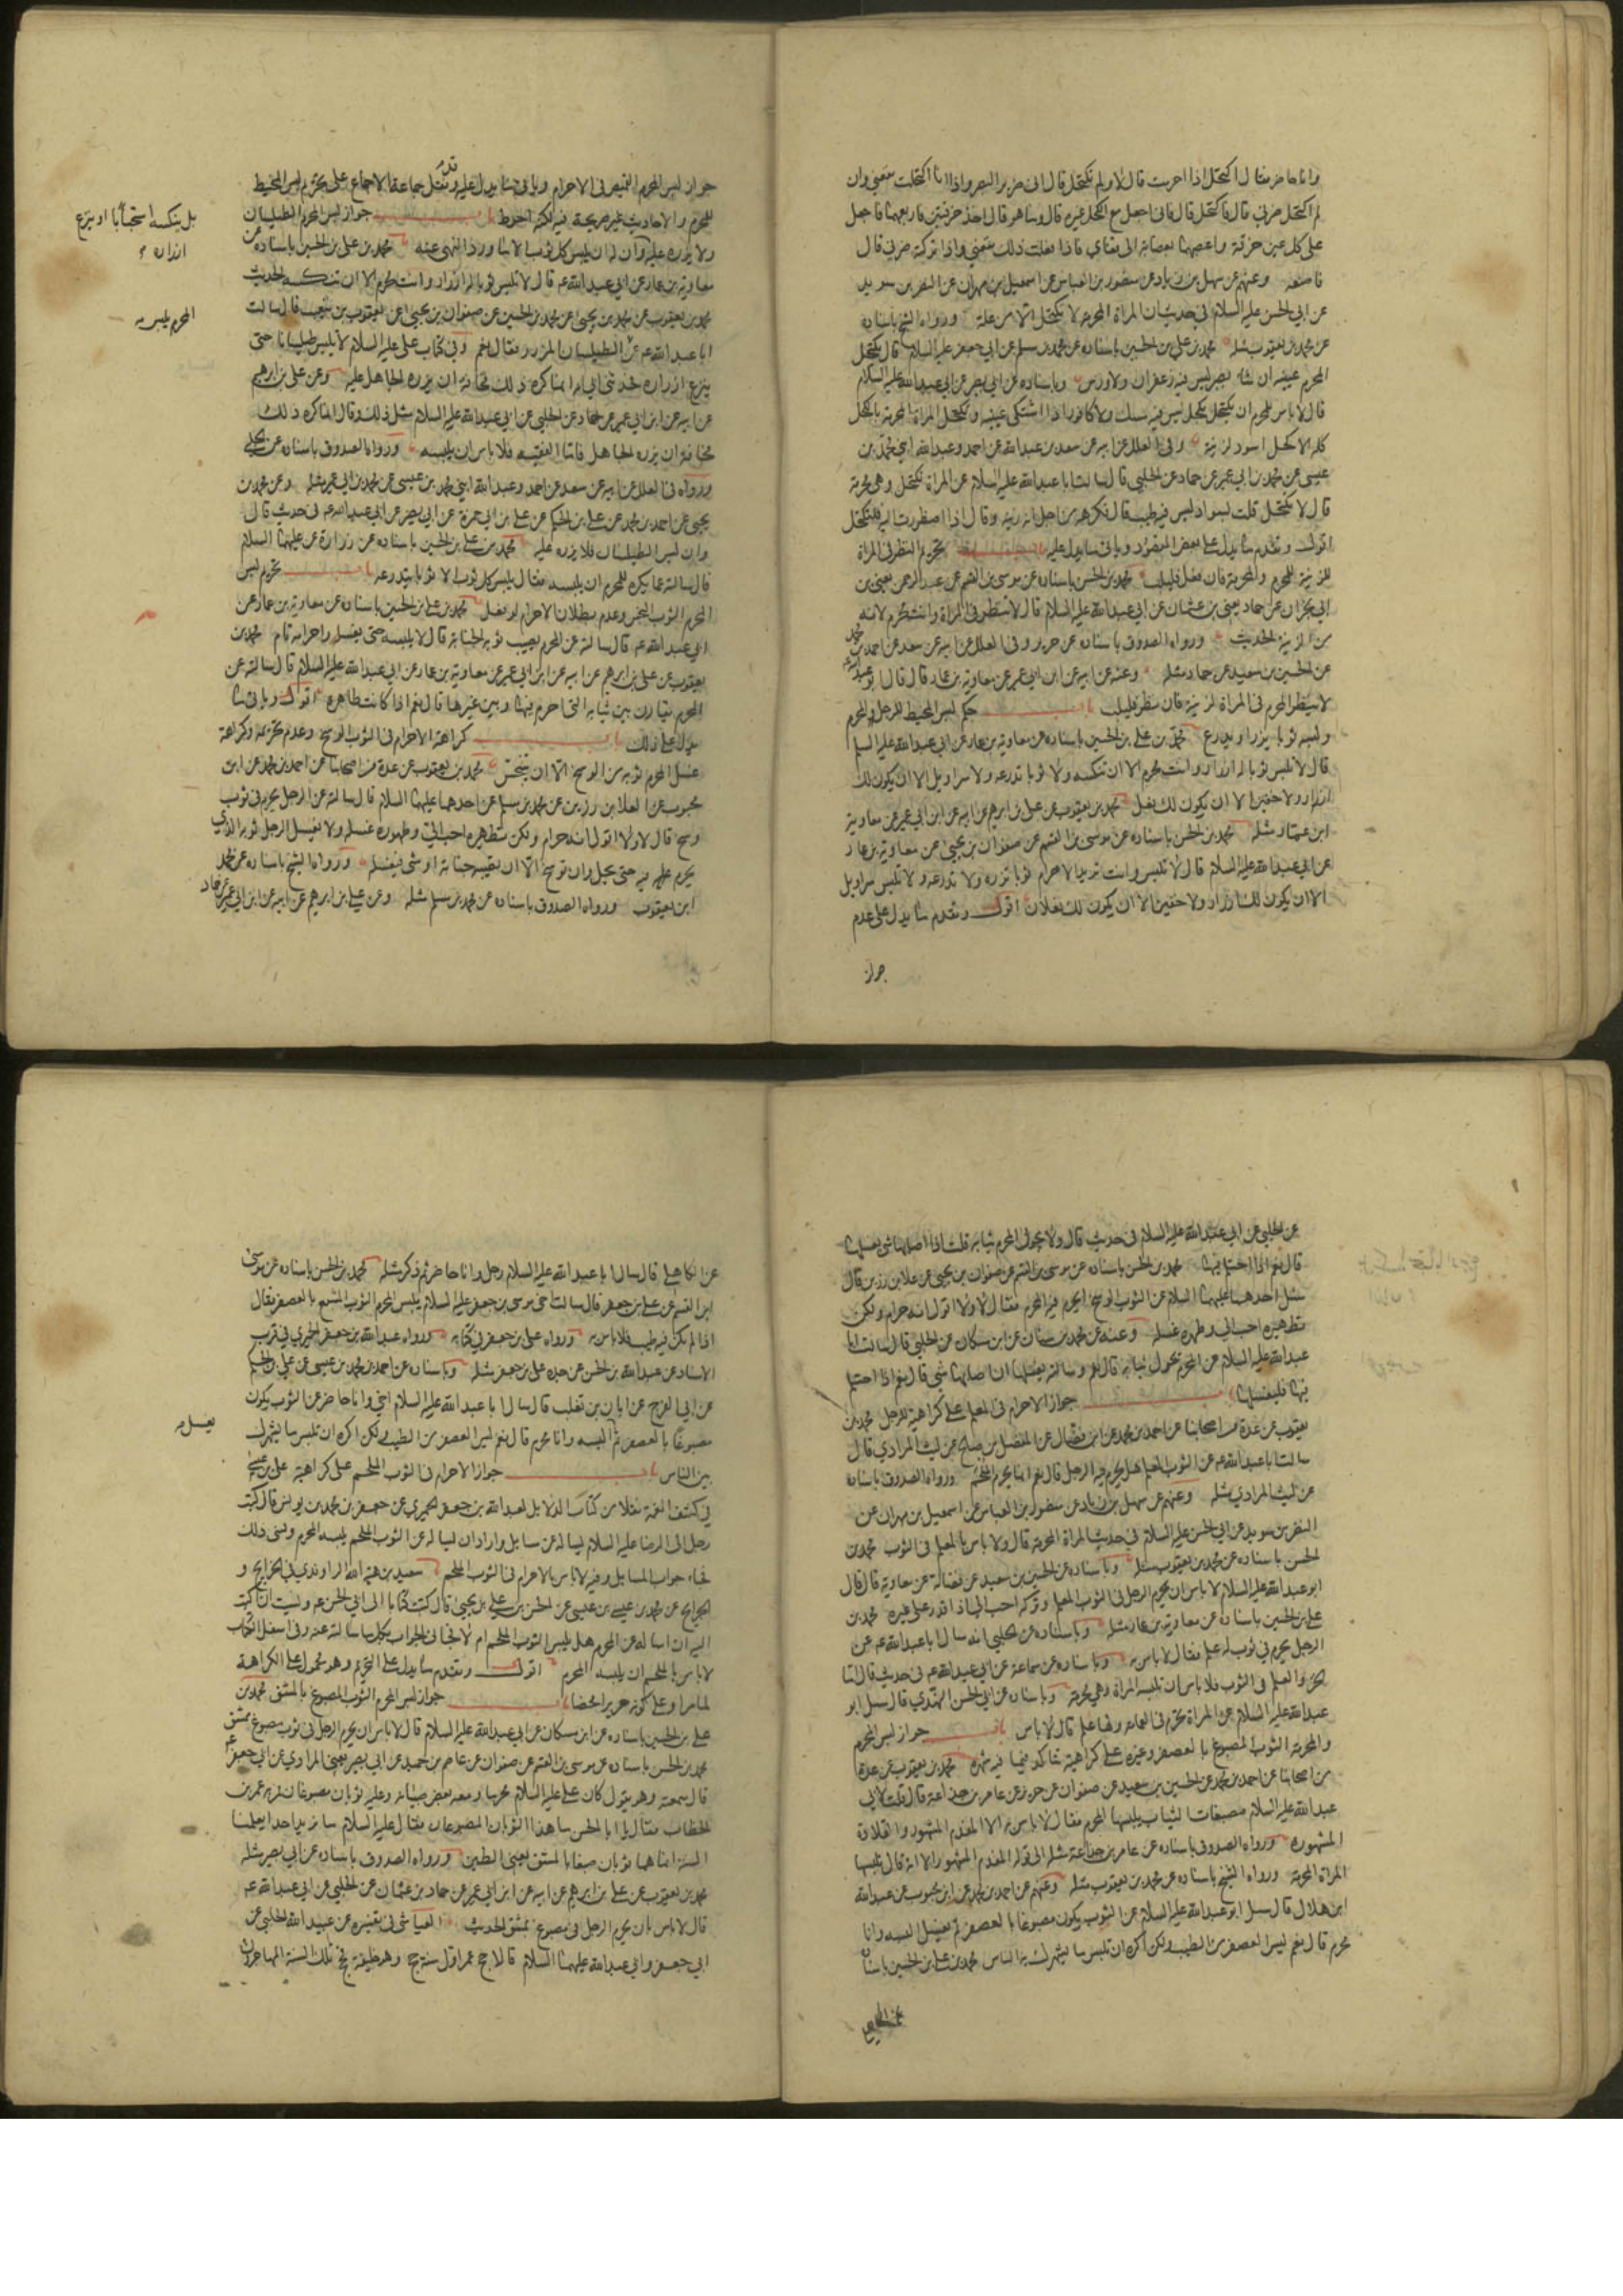 وانا حاضر فقال اكتحل اذا احرمت قال لا ولم تكتحل قال اني ضرير البصر واذا انا اكتحلت نفعني وان
لم اكتحل ضرني قال فاكتحل قال فاني اجعل مع الكحل غيره قال وما هو قال آخذ خرقتين فاربعهما فاجعل
على كل عين خرقة واعصبهما بعصابة الى قفاي فاذا فعلت ذلك نفعني واذا تركته ضرني قال
فاصنعه وعنهم عن سهل بن زياد عن منصور بن العباس عن اسمعيل بن مهران عن النضر بن سويد
عن ابي الحسن عليه السلام في حديث ان المراة المحرمة لا تكتحل الا من علة ورواه الشيخ باسناده
عن محمد بن يعقوب مثله محمد بن علي بن الحسين باسناده عن محمد بن مسلم عن ابي جعفر عليه السلام قال يكتحل
المحرم عينيه ان شاء بصبر ليس فيه زعفران ولا ورس وباسناده عن ابي بصير عن ابي عبدالله عليه السلام
قال لا باس للمحرم ان يكتحل بكحل ليس فيه مسك ولا كافور اذا اشتكى عينيه وتكتحل المراة المحرمة بالكحل
كله الا كحل اسود لزينة وفي العلل عن ابيه عن سعد بن عبدالله عن احمد وعبدالله ابني محمد بن
عيسى عن محمد بن ابي عمير عن حماد عن الحلبي قال سالت ابا عبدالله عليه السلام عن المراة تكتحل وهي محرمة
قال لا تكتحل قلت بسواد ليس فيه طيب قال فكرهه من اجل انه زينة وقال اذا اضطرت اليه فلتكتحل
اقول وتقدم ما يدل على بعض المقصود وياتي ما يدل عليه باب تحريم النظر في المراة
للزينة للمحرم والمحرمة فان فعل فليلب محمد بن الحسن باسناده عن موسى بن القسم عن عبد الرحمن يعني بن
ابي نجران عن حماد يعني بن عثمان عن ابي عبدالله عليه السلام قال لا تنظر في المراة وانت محرم لانه
من الزينة الحديث ورواه الصدوق باسناده عن حريز وفي العلل عن ابيه عن سعد عن احمد بن محمد
عن الحسين بن سعيد عن حماد مثله وعنه عن ابيه عن ابن ابي عمير عن معاوية بن عمار قال قال ابو عبدالله
لا ينظر المحرم في المراة لزينة فان نظر فليلب باب حكم لبس المخيط للرجل المحرم
ولبسه ثوبا يزر او يدرع محمد بن علي بن الحسين باسناده عن معاوية بن عمار عن ابي عبدالله عليه السلام
قال لا تلبس ثوبا له ازرار وانت محرم الا ان تنكسه ولا ثوبا تدرعه ولا سراويل الا ان لا يكون لك
ازار ولا خفين الا ان لا يكون لك نعل محمد بن يعقوب عن علي بن ابرهيم عن ابيه عن ابن ابي عمير عن معاوية
ابن عمار مثله محمد بن الحسن باسناده عن موسى بن القسم عن صفوان بن يحيى عن معاوية بن عمار
عن ابي عبدالله عليه السلام قال لا تلبس وانت تريد الاحرام ثوبا تزره ولا تدرعه ولا تلبس سراويل
الا ان لا يكون لك ازار ولا خفين الا ان لا يكون لك نعلان اقول وتقدم ما يدل على عدم
جواز
جواز لبس المحرم القميص في الاحرام وياتي ما يدل عليه وقد نقل جماعة الاجماع على تحريم لبس المخيط
للمحرم والاحاديث غير صريحة فيه لكنه احوط باب جواز لبس المحرم الطيلسان
ولا يزره عليه وان له ان يلبس كل ثوب الا ما ورد النهي عنه محمد بن علي بن الحسين باسناده عن
معاوية بن عمار عن ابي عبدالله ع قال لا تلبس ثوبا له ازرار وانت محرم الا ان تنكسه الحديث
محمد بن يعقوب عن محمد بن يحيى عن محمد بن الحسين عن صفوان بن يحيى عن يعقوب بن شعيب قال سالت
ابا عبدالله ع عن الطيلسان المزرر فقال نعم وفي كتاب علي عليه السلام لا يلبس طيلسانا حتى
ينزع ازراره فحدثني ابي انما كره ذلك مخافة ان يزره الجاهل عليه وعن علي بن ابرهيم
عن ابيه عن ابن ابي عمير عن حماد عن الحلبي عن ابي عبدالله عليه السلام مثل ذلك وقال انما كره ذلك
مخافة ان يزره الجاهل فاما الفقيه فلا باس ان يلبسه ورواه الصدوق باسناده عن الحلبي
ورواه في العلل عن ابيه عن سعد عن احمد وعبدالله ابني محمد بن عيسى عن محمد بن ابي عمير مثله وعن محمد بن
يحيى عن احمد بن محمد عن علي بن الحكم عن علي بن ابي حمزة عن ابي بصير عن ابي عبدالله ع في حديث قال
وان لبس الطيلسان فلا يزره عليه محمد بن علي بن الحسين باسناده عن زرارة عن احدهما عليهما السلام
قال سالته عما يكره للمحرم ان يلبسه فقال يلبس كل ثوب الا ثوبا يتدرعه باب تحريم لبس
المحرم الثوب النجس وعدم بطلان الاحرام لو فعل محمد بن علي بن الحسين باسناده عن معاوية بن عمار عن
ابي عبدالله ع قال سالته عن المحرم يصيب ثوبه الجنابة قال لا يلبسه حتى يغسله واحرامه تام محمد بن
يعقوب عن علي بن ابرهيم عن ابيه عن ابن ابي عمير عن معاوية بن عمار عن ابي عبدالله عليه السلام قال سالته عن
المحرم يقارن بين ثيابه التي احرم فيها وبين غيرها قال نعم اذا كانت طاهرة اقول وياتي ما
يدل على ذلك باب كراهة الاحرام في الثوب الوسخ وعدم تحريمه وكراهة
غسل المحرم ثوبه من الوسخ الا ان ينجس محمد بن يعقوب عن عدة من اصحابنا عن احمد بن محمد عن ابن
محبوب عن العلا بن رزين عن محمد بن مسلم عن احدهما عليهما السلام قال سالته عن الرجل يحرم في ثوب
وسخ قال لا ولا اقول انه حرام ولكن تطهيره احب الي وطهوره غسله ولا يغسل الرجل ثوبه الذي
يحرم فيه حتى يحل وان توسخ الا ان تصيبه جنابة او شئ فيغسله ورواه الشيخ باسناده عن محمد
ابن يعقوب ورواه الصدوق باسناده عن محمد بن مسلم مثله وعن علي بن ابرهيم عن ابيه عن ابن ابي عمير عن حماد
بل ينكسه استحبابا او ينزع
ازراره
المحرم يلبس
عن الحلبي عن ابي عبدالله عليه السلام في حديث قال ولا يحول المحرم ثيابه قلت اذا اصابها شئ يغسلها
قال نعم اذا احتلم فيها محمد بن الحسن باسناده عن موسى بن القسم عن صفوان بن يحيى عن علا بن رزين قال
سئل احدهما عليهما السلام عن الثوب الوسخ ايحرم فيه المحرم فقال لا ولا اقول انه حرام ولكن
تطهيره احب الي وطهره غسله وعنه عن محمد بن سنان عن ابن مسكان عن الحلبي قال سالت ابا
عبدالله عليه السلام عن المحرم يحول ثيابه قال نعم وسالته يغسلها ان اصابها شئ قال نعم اذا احتلم
فيها فليغسلها باب جواز الاحرام في المعلم على كراهية للرجل محمد بن
يعقوب عن عدة من اصحابنا عن احمد بن محمد عن ابن فضال عن المفضل بن صالح عن ليث المرادي قال
سالت ابا عبدالله ع عن الثوب المعلم هل يحرم فيه الرجل قال نعم انما يحرم الملحم ورواه الصدوق باسناده
عن ليث المرادي مثله وعنهم عن سهل بن زياد عن منصور بن العباس عن اسمعيل بن مهران عن
النضر بن سويد عن ابي الحسن عليه السلام في حديث المراة المحرمة قال ولا باس بالعلم في الثوب محمد بن
الحسن باسناده عن محمد بن يعقوب مثله وباسناده عن الحسين بن سعيد عن فضالة عن معاوية قال قال
ابو عبدالله عليه السلام لا باس ان يحرم الرجل في الثوب المعلم وتركه احب الي اذا قدر على غيره محمد بن
علي بن الحسين باسناده عن معاوية بن عمار مثله وباسناده عن الحلبي انه سال ابا عبدالله ع عن
الرجل يحرم في ثوب له علم فقال لا باس به وباسناده عن سماعة عن ابي عبدالله ع في حديث قال اما
الخز والعلم في الثوب فلا باس ان تلبسه المراة وهي محرمة وباسناده عن ابي الحسن النهدي قال سئل ابو
عبدالله عليه السلام عن المراة تحرم في العمامة ولها علم قال لا باس باب جواز لبس المحرم
والمحرمة الثوب المصبوغ بالعصفر وغيره على كراهية تتاكد فيما فيه شهرة محمد بن يعقوب عن عدة
من اصحابنا عن احمد بن محمد عن الحسين بن سعيد عن صفوان عن حريز عن عامر بن جذاعة قال قلت لابي
عبدالله عليه السلام مصبغات الثياب يلبسها المحرم فقال لا باس به الا المفدم المشهور والقلادة
المشهورة ورواه الصدوق باسناده عن عامر بن جذاعة مثله الى قوله المفدم المشهور الا انه قال تلبسها
المراة المحرمة ورواه الشيخ باسناده عن محمد بن يعقوب مثله وعنهم عن احمد بن محمد عن ابن محبوب عن عبدالله
ابن هلال قال سئل ابو عبدالله عليه السلام عن الثوب يكون مصبوغا بالعصفر ثم يغسل البسه وانا
محرم قال نعم ليس العصفر من الطيب ولكن اكره ان تلبس ما يشهرك به الناس محمد بن علي بن الحسين باسناده
عن الكاهلي قال سال ابا عبدالله عليه السلام رجل وانا حاضر ثم ذكر مثله محمد بن الحسن باسناده عن موسى
ابن القسم عن علي بن جعفر قال سالت اخي موسى بن جعفر عليه السلام يلبس المحرم الثوب المشبع بالعصفر فقال
اذا لم يكن فيه طيب فلا باس به ورواه علي بن جعفر في كتابه ورواه عبدالله بن جعفر الحميري في قرب
الاسناد عن عبدالله بن الحسن عن جده علي بن جعفر مثله وباسناده عن احمد بن محمد بن عيسى عن علي بن الحكم
عن ابي الفرج عن ابان بن تغلب قال سال ابا عبدالله عليه السلام اخي وانا حاضر عن الثوب يكون
مصبوغا بالعصفر ثم البسه وانا محرم قال نعم ليس العصفر من الطيب ولكن اكره ان تلبس ما يشهرك
بين الناس باب جواز الاحرام في الثوب الملحم على كراهية علي بن عيسى
في كشف الغمة نقلا من كتاب الدلايل لعبدالله بن جعفر الحميري عن جعفر بن محمد بن يونس قال كتب
رجل الى الرضا عليه السلام يساله عن مسايل واراد ان يساله عن الثوب الملحم يلبسه المحرم ونسي ذلك
فجاء جواب المسايل وفيه لا باس بالاحرام في الثوب الملحم سعيد بن هبة الله الراوندي في الخرايج و
الجرايح عن محمد بن عيسى بن عيسى عن الحسن بن علي بن يحيى قال كتبت كتابا الى ابي الحسن ع ونسيت ان اكتب
اليه ان اساله عن المحرم هل يلبس الثوب الملحم ام لا فجاءني الجواب بكل ما سالته عنه وفي اسفل الكتاب
لا باس بالملحم ان يلبسه المحرم اقول وتقدم ما يدل على التحريم وهو محمول على الكراهة
لما مر او على كونه حريرا محضا باب جواز لبس المحرم الثوب المصبوغ بالمشق محمد بن
علي بن الحسين باسناده عن ابن مسكان عن ابي عبدالله عليه السلام قال لا باس ان يحرم الرجل في ثوب مصبوغ بمشق
محمد بن الحسن باسناده عن موسى بن القسم عن صفوان عن عاصم بن حميد عن ابي بصير يعني المرادي عن ابي جعفر ع
قال سمعته وهو يقول كان علي عليه السلام محرما ومعه بعض صبيانه وعليه ثوبان مصبوغان فمر به عمر بن
الخطاب فقال يا ابا الحسن ما هذا الثوبان المصبوغان فقال عليه السلام ما نريد احدا يعلمنا
السنة انما هما ثوبان صبغا بالمشق يعني الطين ورواه الصدوق باسناده عن ابي بصير مثله
محمد بن يعقوب عن علي بن ابرهيم عن ابيه عن ابن ابي عمير عن حماد بن عثمان عن الحلبي عن ابي عبدالله ع
قال لا باس بان يحرم الرجل في مصبوغ بمشق الحديث العياشي في تفسيره عن عبيد الله الحلبي عن
ابي جعفر وابي عبدالله عليهما السلام قالا حج عمر اول سنة حج وهو خليفة فحج تلك السنة المهاجرون
يغسل